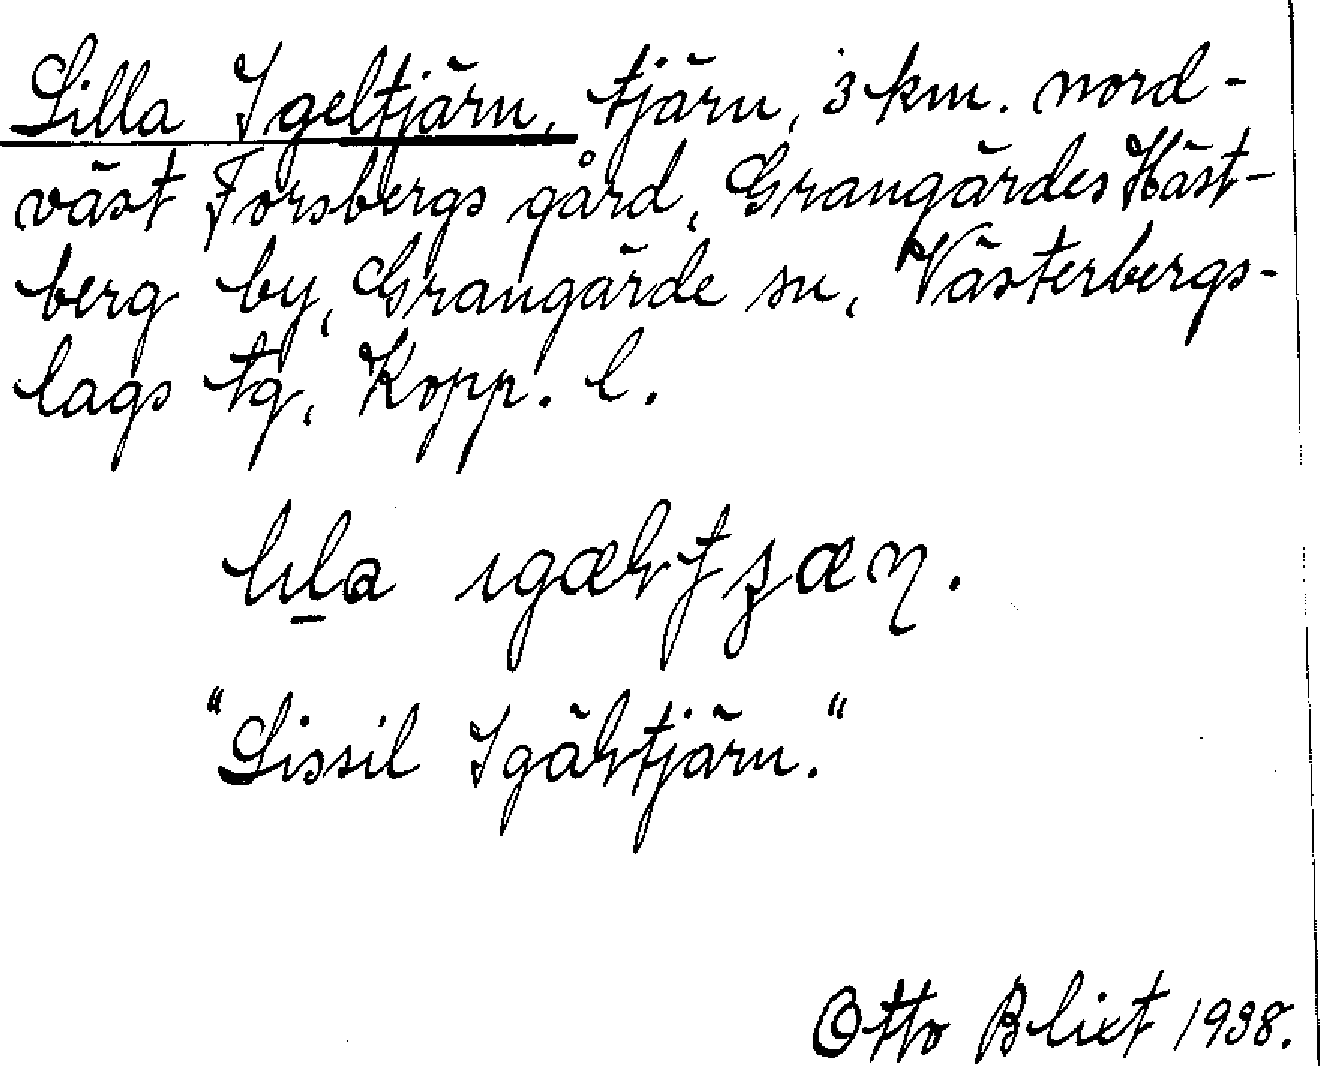 Lilla Igeltjärn, tjärn, 3 km. nord-
väst Forsbergs gård, Grangärdes Häst-
berg by, Grangärde sn, Västerbergs-
lags tg, Kopp. l.
"Lissil Igältjärn."
Otto Blixt 1938.